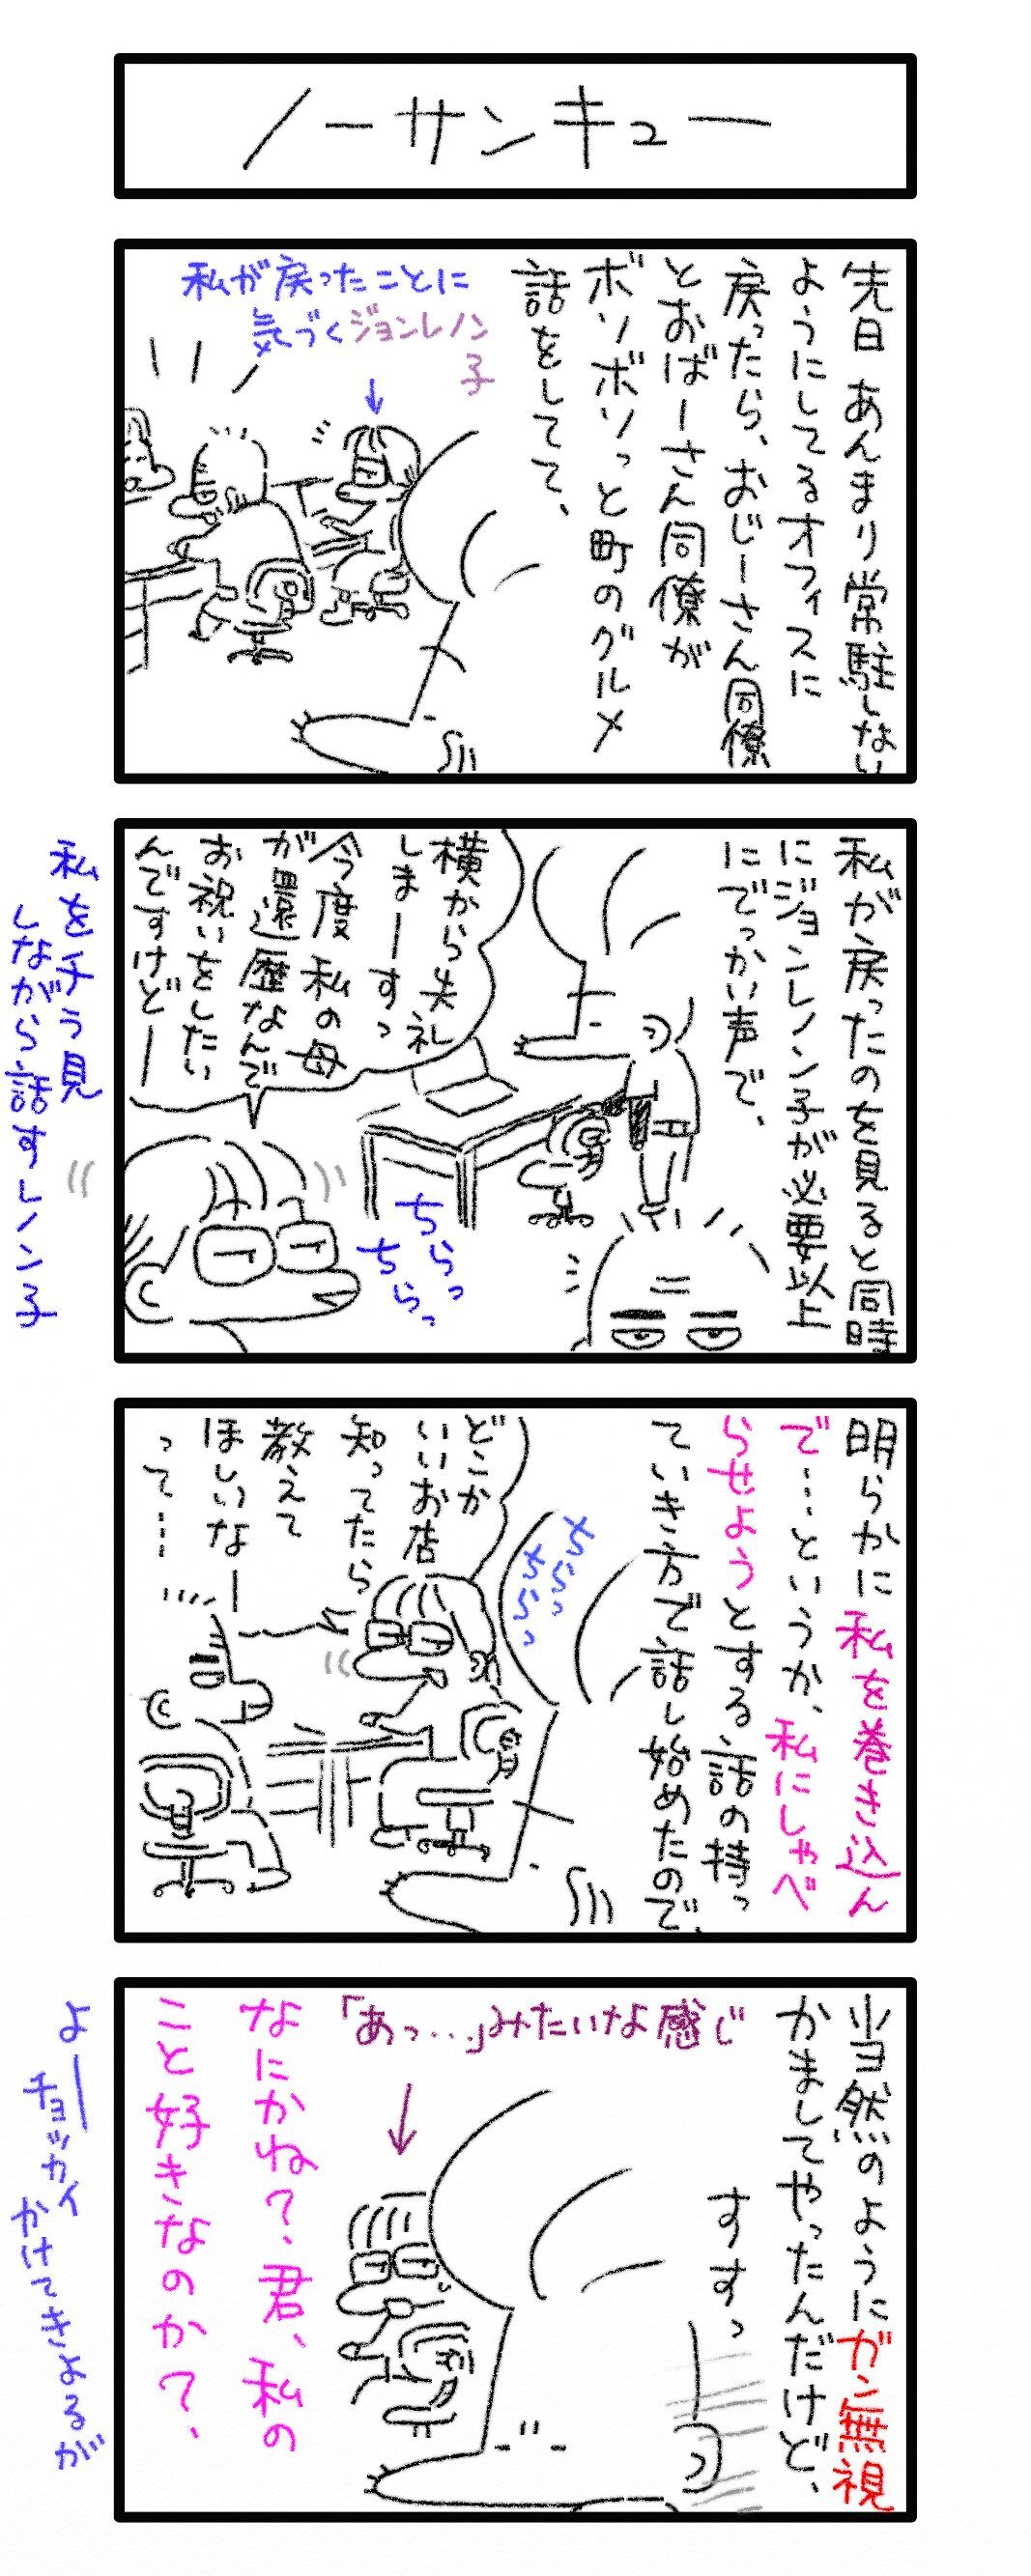 ノーサンキュー
先日 あんまり常駐しない
ようにしてるオフィスに
戻ったら、おじーさん同僚
とおばーさん同僚が
ボソボソっと町のグルメ
話をしてて、
私が戻ったことに
気づくジョンレノン
子
私が戻ったのを見ると同時
にジョンレノン子が必要以上
にでっかい声で、
横から失礼
しまーすっ
今度 私の母
が還暦なんで
お祝いをしたい
んですけどー
ちらっ
ちらっ
私をチラ見
しながら話すレノン子
明らかに私を巻き込ん
で…というか、私にしゃべ
らせようとする話の持っ
ていき方で話し始めたので、
ちらっ
ちらっ
どこか
いいお店
知ってたら
教えて
ほしいなー
って…
当然のようにガン無視
かましてやったんだけど、
すすっ
「あっ…」みたいな感じ
なにかね?君、私の
こと好きなのか?
よーチョッカイ
かけてきよるが